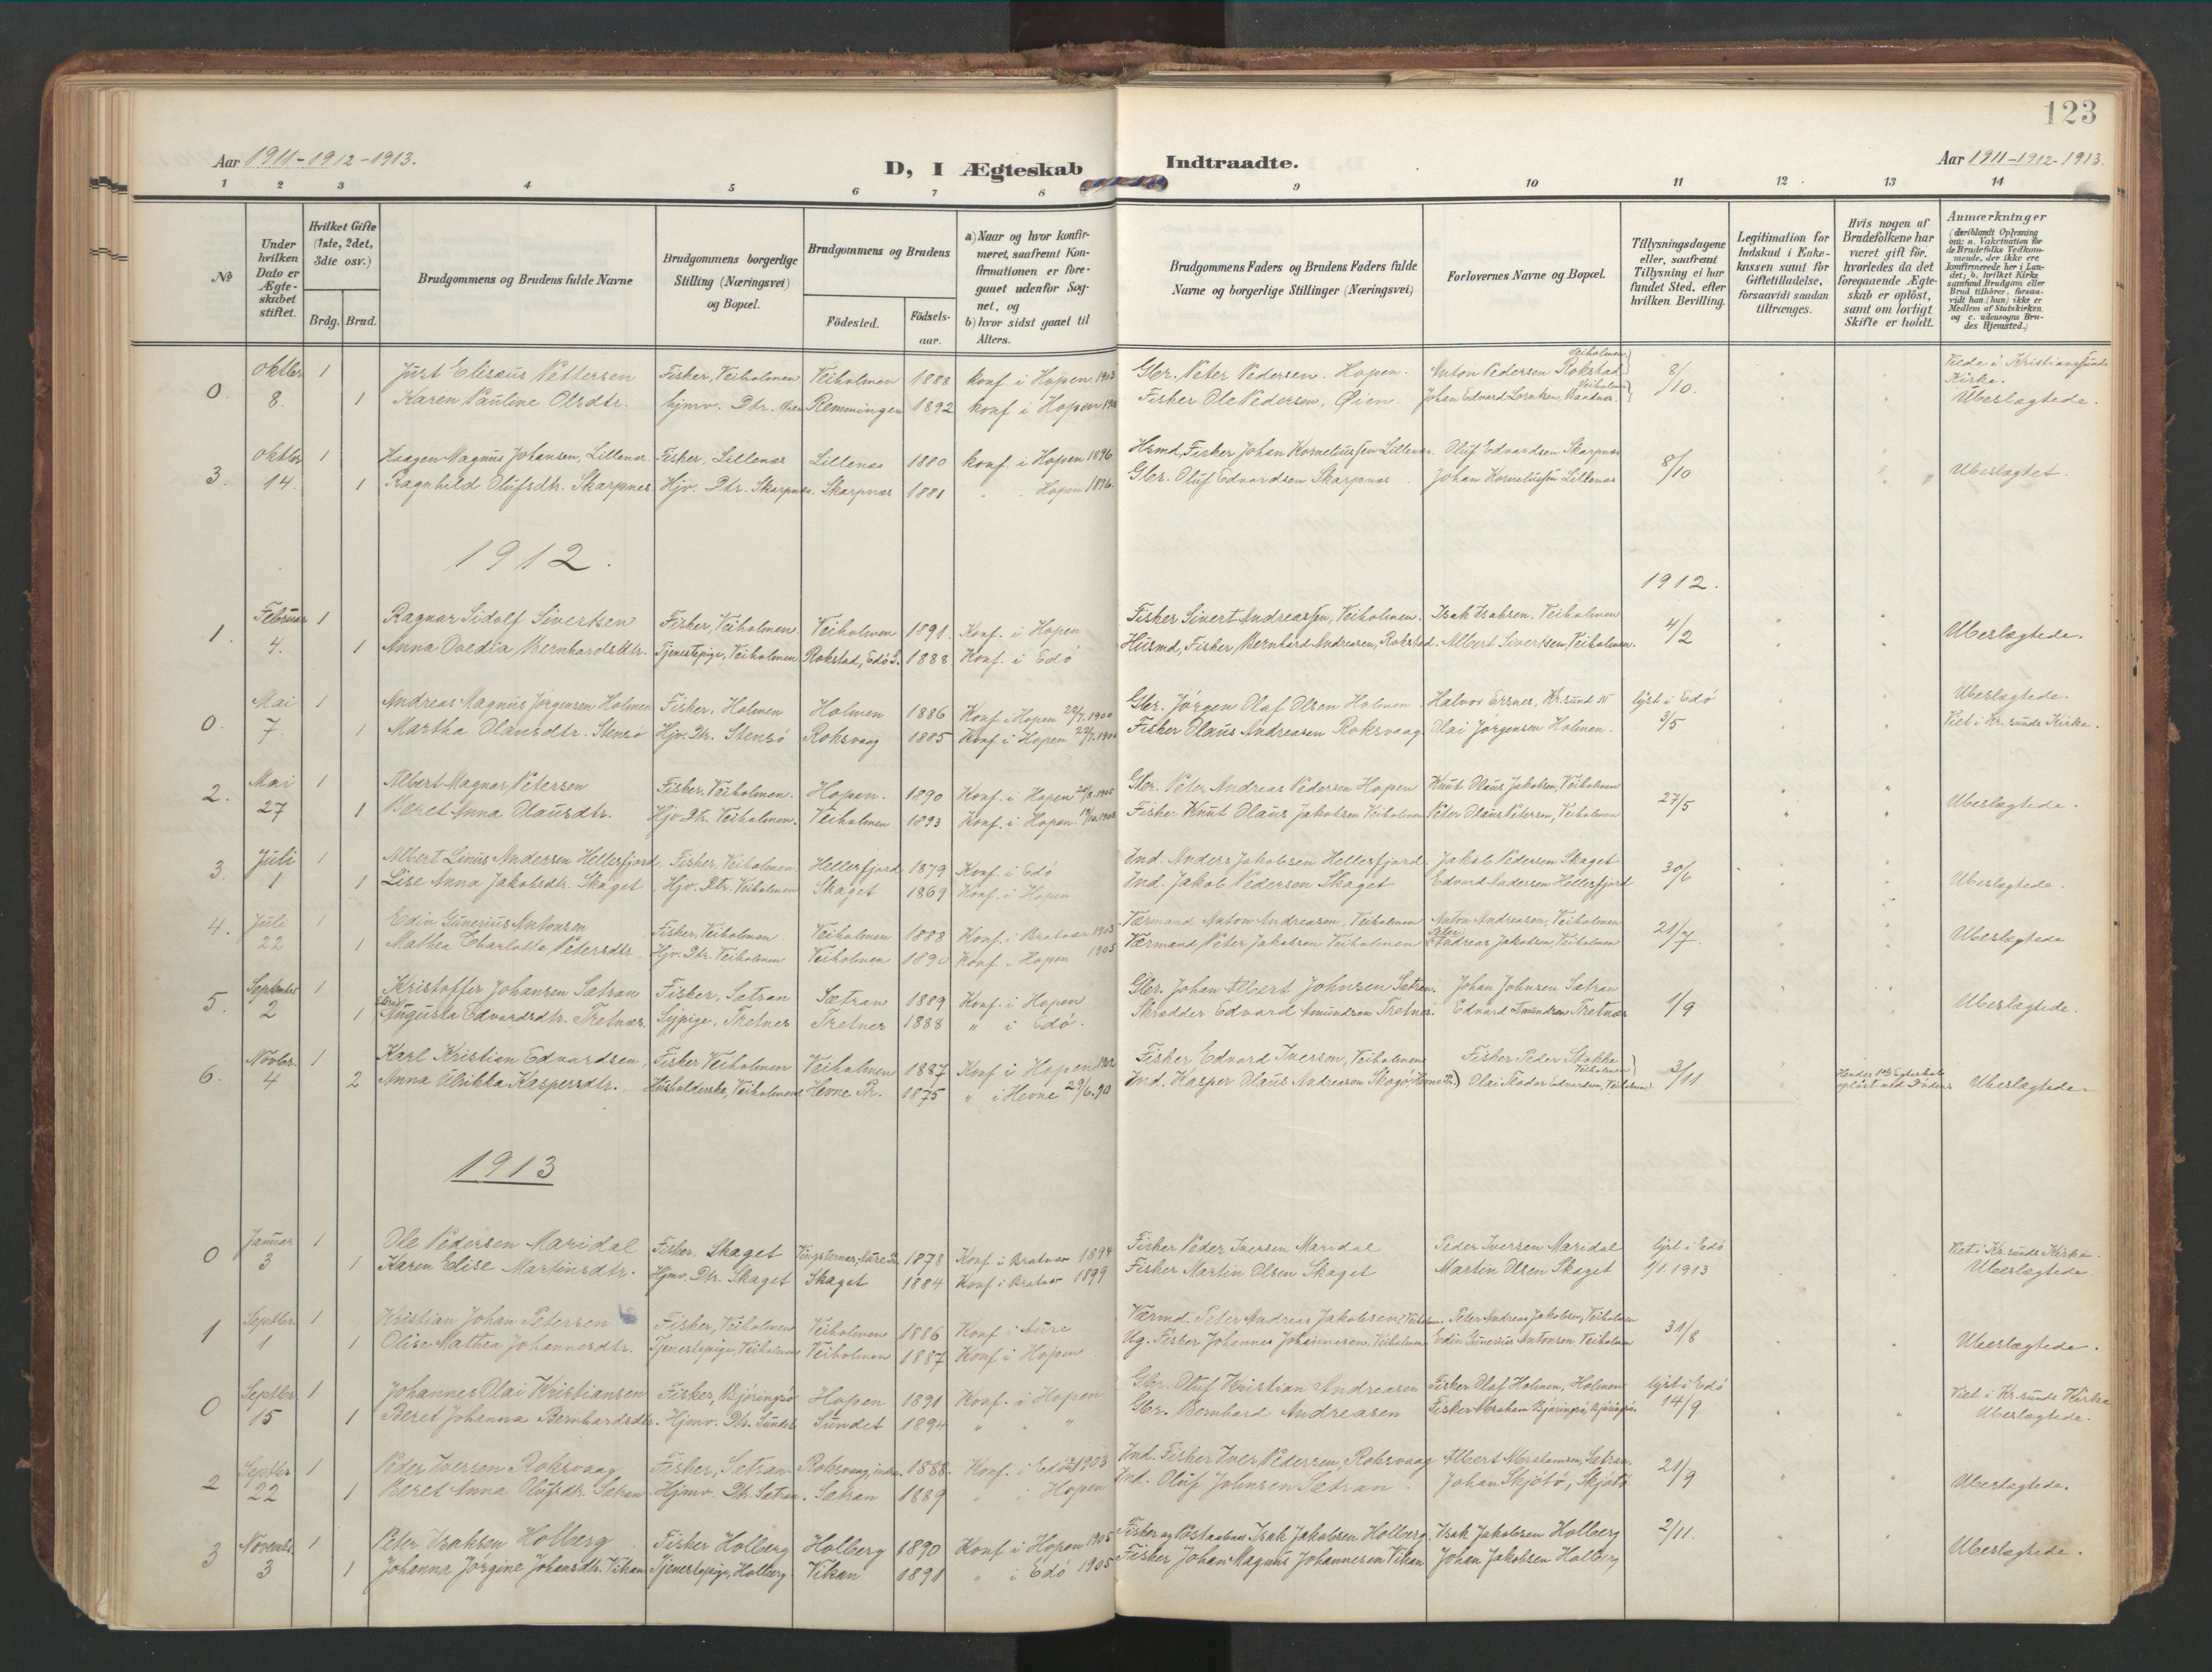 123
Aar 1911-1912-1913.
D, I Ægteskab Indtraadte.
Aar 1911-1912-1913.
1 2 3 4 5 6 7 8 9 10 11 12 13 14
No
Under hvilken Dato er Ægteskabet stiftet.
Hvilket Gifte (1ste, 2det, 3die osv.)
Brdg. Brud.
Brudgommens og Brudens fulde Navne
Brudgommens borgerlige Stilling (Næringsvei) og Bopæl.
Brudgommens og Brudens
Födested. Födsels-aar.
a) Naar og hvor konfirmeret, saafremt Konfirmationen er foregaaet udenfor Sognet, og
b) hvor sidst gaaet til Alters.
Brudgommens Faders og Brudens Faders fulde Navne og borgerlige Stillinger (Næringsvei)
Forlovernes Navne og Bopæl.
Tillysningsdagene eller, saafremt Tillysning ei har fundet Sted, efter hvilken Bevilling.
Legitimation for Indskud i Enkekassen samt for Giftetilladelse, forsaavidt saadan tiltrænges.
Hvis nogen af Brudefolkene har været gift för, hvorledes da det foregaaende Ægteskab er oplöst, samt om lovligt Skifte er holdt.
Anmærkninger (deriblandt Oplysning om: a. Vakcination for de Brudefolks Vedkommende, der ikke ere konfirmerede her i Landet; b. hvilket Kirkesamfund Brudgom eller Brud tilhörer, forsaavidt han (hun) ikke er Medlem af Statskirken og c. udensogns Brudes Hjemsted.)
0. Oktbr 1 Just Elisæus Pettersen Fisker, Veiholmen Veiholmen 1888 konf i Hopen 1903 Gbr. Peter Pedersen. Hopen. Anton Pedersen Rokstad Veiholmen 8/10. Viede i Kristianssunds Kirke.
8. 1 Karen Pauline Olsdtr. hjmv. Dtr. Øien Remmingen 1892 konf i Hopen Fisker Ole Pedersen, Øien. Johan Edvard Veiholmen Ubeslægtede.
3. Oktbr 1 Haagen Magnus Johansen, Lillenes Fisker, Lillenes Lillenes 1880 konf. i Hopen 1896 Hsmd, Fisker Johan Korneliussen Lillenes. Oluf Edvardsen Skarpnes 8/10 Ubeslægtet.
14. 1 Ragnhild Olufsdtr. Skarpnes Hjv. Dtr. Skarpnes. Skarpnes 1881 " Hopen 1896. Gbr. Oluf Edvardsen Skarpnes Johan Korneliussen Lillenes
1912. 1912.
1. Februar 1 Ragnar Sidolf Sivertsen Fisker, Veiholmen Veiholmen 1891. Konf. i Hopen Fisker Sivert Andreassen, Veiholmen. Isak Isaksen, Veiholmen 4/2 Ubeslægtede.
4. 1 Anna Ovedia Bernhardsdtr. Tjenestepige, Veiholmen Rokstad, Edö S. 1888 Konf. i Edö Husmd, Fisker, Bernhard Andreasen, Rokstad. Albert Sivertsen, Veiholmen.
0. Mai 1 Andreas Magnus Jørgensen Holmen Fisker, Holmen Holmen 1886 Konf i Hopen 22/7.1900 Gbr. Jörgen Olaf Olsen Holmen Halvor Ersnes, Kr.sund N lyst i Edö Ubeslægtede.
7. 1 Martha Olausdtr. Stensö Hjv. Dtr. Stensö Roksvaag 1885 Konf i Hopen Fisker Olaus Andreasen Roksvaag Olai Jörgensen Holmen. 3/5 Viet i Kr.sunds Kirke.
2. Mai 1 Albert Magnar Petersen Fisker, Veiholmen. Hopen. 1890 Konf. i Hopen Gbr. Peter Andreas Pedersen Hopen Knut Olaus Jakobsen, Veiholmen 27/5 Ubeslægtede.
27 1 Beret Anna Olausdtr. Hjv. Dtr. Veiholmen. Veiholmen 1893 Konf. i Hopen. Fisker Knut Olaus Jakobsen Veiholmen Peter Olaus Petersen, Veiholmen
3. Juli 1 Albert Linus Andersen Hellesfjord Fisker, Veiholmen. Hellesfjord 1879 Konf. i Edö Ind. Anders Jakobsen Hellesfjord Jakob Pedersen Skaget 30/6 Ubeslægtede.
1 1 Lise Anna Jakobsdtr. Skaget Hjv. Dtr. Veiholmen Skaget 1869 Konf. i Hopen Ind. Jakob Pedersen Skaget Edvard Andersen Hellesfjord
4. Juli 1 Edin Gunerius Antonsen Fisker, Veiholmen. Veiholmen 1888 Konf. i Bratvær 1903 Værmand Anton Andreasen, Veiholmen Anton Andreasen, Veiholmen 21/7. Ubeslægtede
22 1 Mathea Charlotte Petersdtr. Hjv. Dtr. Veiholmen Veiholmen 1890 Konf. " Hopen 1905 Værmand Peter Jakobsen Veiholmen Peter Andreas Jakobsen, Veiholmen
5. September 1 Kristoffer Johansen Sætran Fisker, Sætran Sætran 1889 Konf. i Hopen Gbr. Johan Albert Johnsen Sætran. Johan Johnsen Sætran 1/9 Ubeslægtede.
2 1 Augusta Edvardsdtr. Tretnæs. Sypige, Tretnes Tretnes 1888 " i Edö. Skrædder Edvard Amundsen Tretnes. Edvard Amundsen Tretnæs
6. Novbr. 1 Karl Kristian Edvardsen Fisker Veiholmen Veiholmen 1887 Konf i Hopen 1902 Fisker Edvard Iversen, Veiholmen Fisker Peder Stokke Veiholmen 3/11 Hendes 1ste Ægteskab Ubeslægtede.
4 2 Anna Ulrikka Kaspersdtr. Husholderske, Veiholmen Hevne Pr. 1875 " i Hevne 29/6.90 Ind. Kasper Olaus Andreasen Skogö (Hevne Pr.) Olai Teodor Edvardsen, Veiholmen oplöst ved Döden.
1913
0 Januar 1 Ole Pedersen Maridal Fisker. Skaget 1878 Konf i Bratvær 1894 Fisker Peder Iversen Maridal Peder Iversen Maridal lyst i Edö Viet i Kr.sunds Kirke.
3 1 Karen Elise Martinsdtr. Hjmv. Dtr. Skaget Skaget 1884 Konf i Bratvær 1899 Fisker Martin Olsen Skaget Martin Olsen Skaget 1/1 1913 Ubeslægtede
1 Septbr. 1 Kristian Johan Petersen Fisker, Veiholmen Veiholmen 1886 Konf i Aure Værmd. Peter Andreas Jakobsen Veiholmen Peter Andreas Jakobsen, Veiholmen 31/8 Ubeslægtede.
1 1 Olise Mathea Johannesdtr. Tjenestepige, Veiholmen Veiholmen 1887 Konf i Hopen Ug. Fisker Johannes Johannesen, Veiholmen Edin Gunerius Antonsen, Veiholmen
0 Septbr 1 Johannes Olai Kristiansen Fisker, Björingsö Hopen 1891 Konf. i Hopen Gbr. Oluf Kristian Andreasen Fisker Olaf Holmen, Holmen lyst i Edö Viet i Kr.sunds Kirke
15 1 Beret Johanna Bernhardsdtr. Hjmv. Dtr. Sundet Sundet 1894 " " " Gbr. Bernhard Andreasen Fisker Abraham Björingsö, Björingsö. 14/9 Ubeslægtede.
2 Septbr 1 Peder Iversen Roksvaag Fisker, Sætran Roksvaag, indre 1888. Konf. i Edö 1903 Ind. Fisker Iver Pedersen, Roksvaag Albert Abrahamsen, Sætran. 21/9 Ubeslægtede.
22 1 Beret Anna Olufsdtr. Sætran Hjmv. Dtr. Sætran. Sætran 1889 " i Hopen Ind. Oluf Johnsen Sætran. Johan Skjötö, Skjötö
3 Novembr. 1 Peter Isaksen Holberg Fisker Holberg Holberg 1890 Konf i Hopen 1905 Fisker og Postaabner Isak Jakobsen Holberg. Isak Jakobsen Holberg 2/11. Ubeslægtede.
3 1 Johanna Jörgine Johansdtr. Vikan Tjenestepige, Holberg Vikan 1891 " i Edö 1905 Fisker Johan Magnus Johannesen Vikan Johan Jakobsen Holberg